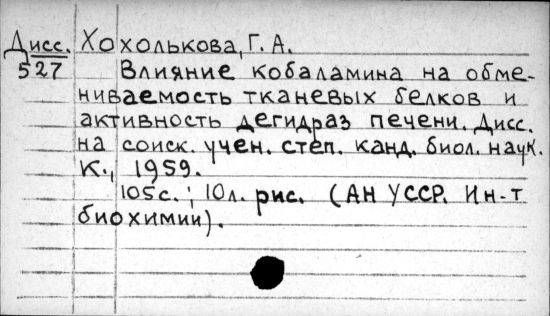 Дисс. Хохолькова, Г. А.
527 Влияние кобаламина на обме-
ниваемость тканевых белков и
активность дегидраз печени. Дисс.
на соиск. учен. степ. канд. биол. наук.
К., 1959.
105 с.; 10 л. рис. (АН УССР. Ин-т
биохимии).